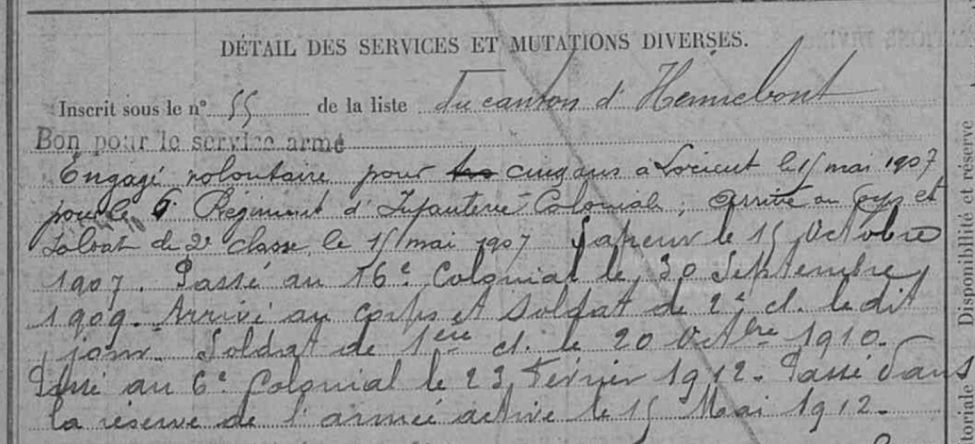 DÉTAIL DES SERVICES ET MUTATIONS DIVERSES.
Inscrit sous le n° 55 de la liste du canton d'Hennebont
Bon pour le service armé
Engagé volontaire pour cinq ans à Lorient le 15 mai 1907
pour le 6e Régiment d'Infanterie Coloniale; arrivé au corps et
soldat de 2e classe le 15 mai 1907 Sapeur le 15 Octobre
1907. Passé au 16e Colonial le 30 Septembre
1909. Arrivé au corps et soldat de 2e cl. le dit
jour. Soldat de 1ère cl. le 20 Octbre 1910.
Passé au 6e Colonial le 23 Février 1912. Passé dans
la réserve de l'armée active le 15 Mai 1912.
Disponibilité et réserve